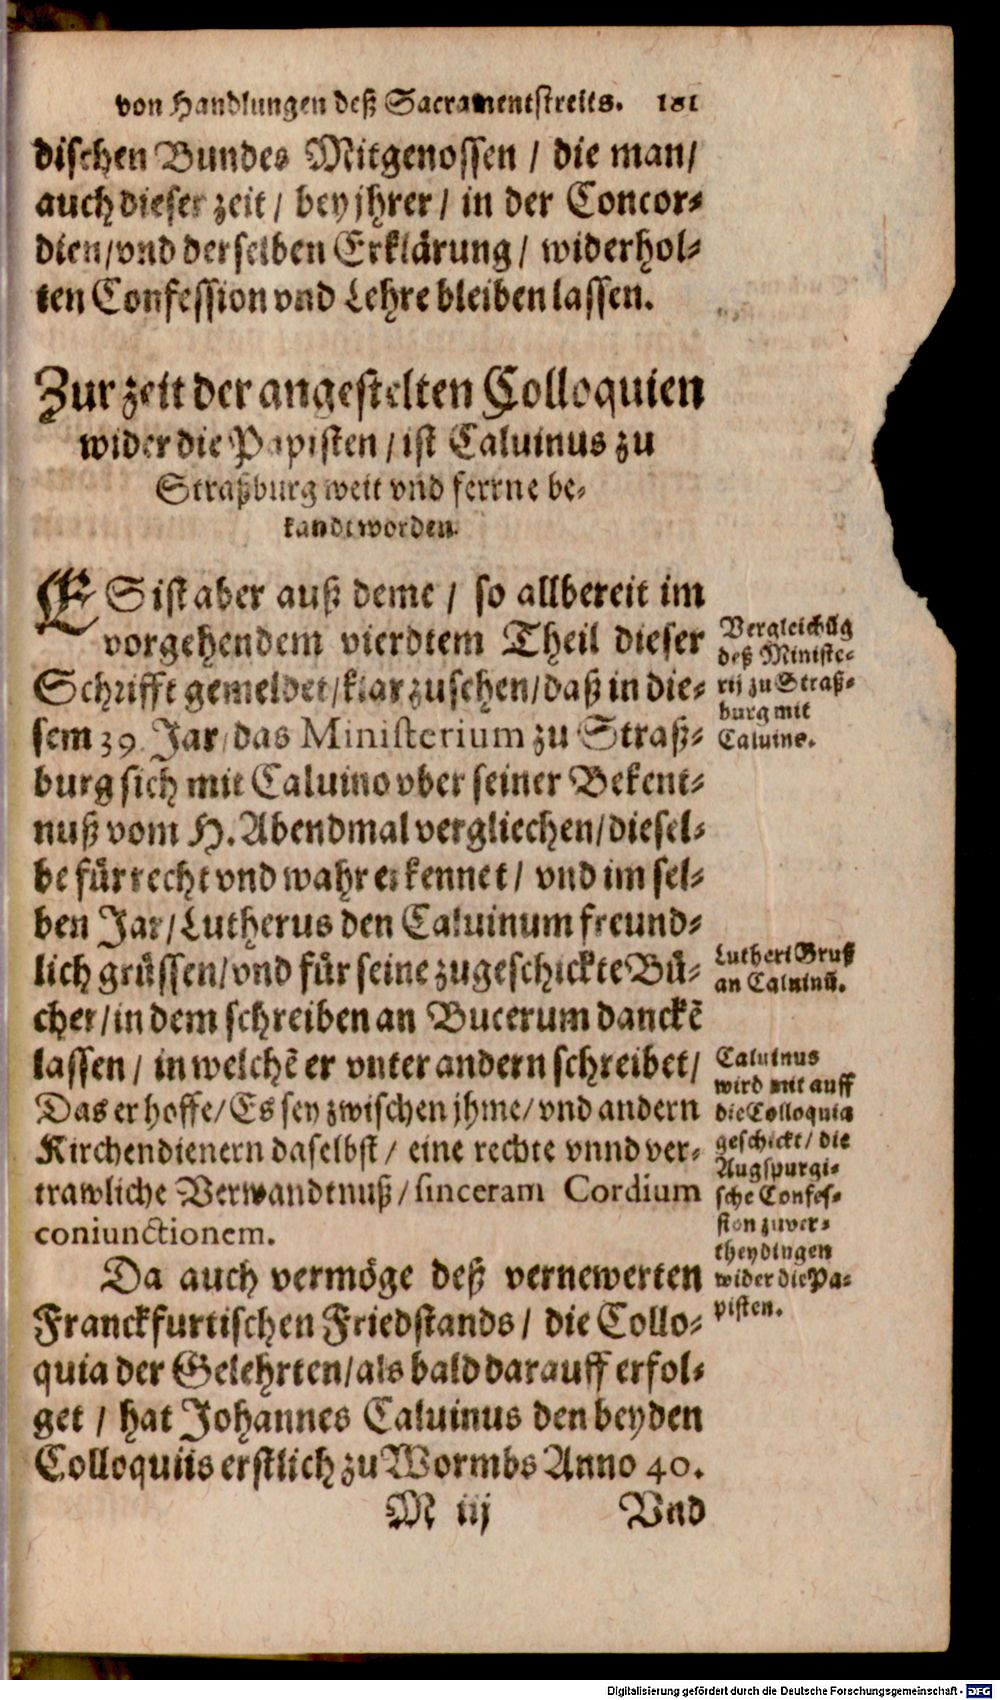 von Handlungen deß Sacramentstreits. 181
dischen Bundes Mitgenossen / die man/
auch dieser zeit / bey jhrer / in der Concor-
dien/vnd derselben Erklärung / widerhol-
ten Confession vnd Lehre bleiben lassen.
Zur zeit der angestelten Colloquien
wider die Papisten / ist Caluinus zu
Straßburg weit vnd ferrne be-
kandt worden.
ES ist aber auß deme / so allbereit im
vorgehendem vierdtem Theil dieser
Schrifft gemeldet/klar zusehen/daß in die-
sem 39. Jar/das Ministerium zu Straß-
burg sich mit Caluino vber seiner Bekent-
nuß vom H. Abendmal vergliechen/diesel-
be für recht vnd wahr erkennet / vnd im sel-
ben Jar/Lutherus den Caluinum freund-
lich grüssen/vnd für seine zugeschickte Bü-
cher/in dem schreiben an Bucerum danckẽ
lassen / in welchẽ er vnter andern schreibet/
Das er hoffe/Es sey zwischen jhme/vnd andern
Kirchendienern daselbst / eine rechte vnnd ver-
trawliche Verwandtnuß / sinceram Cordium
coniunctionem.
Da auch vermöge deß vernewerten
Franckfurtischen Friedstands / die Collo-
quia der Gelehrten/als bald darauff erfol-
get / hat Johannes Caluinus den beyden
Colloquiis erstlich zu Wormbs Anno 40.
M iij Vnd
Vergleichũg
deß Ministe-
rij zu Straß-
burg mit
Caluino.
Lutheri Gruß
an Caluinũ.
Caluinus
wird mit auff
die Colloquia
geschickt / die
Augspurgi-
sche Confes-
sion zuver-
theydingen
wider die Pa-
pisten.
Digitalisierung gefördert durch die Deutsche Forschungsgemeinschaft - DFG